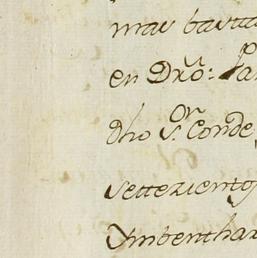 mas basta
en Dro̅: Pa
dho S.ᵒʳ Conde
setteziento
Ynbenthar